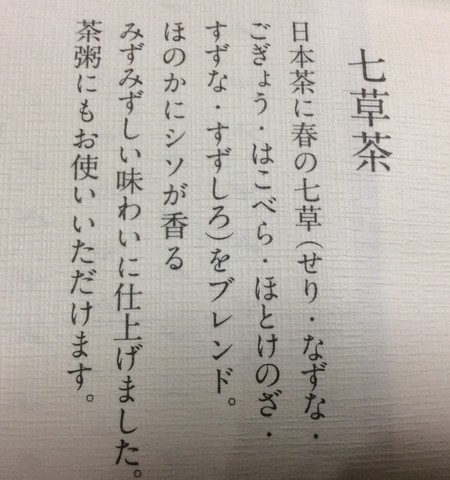 七草茶
日本茶に春の七草(せり・なずな・
ごぎょう・はこべら・ほとけのざ・
すずな・すずしろ)をブレンド。
ほのかにシソが香る
みずみずしい味わいに仕上げました。
茶粥にもお使いいただけます。